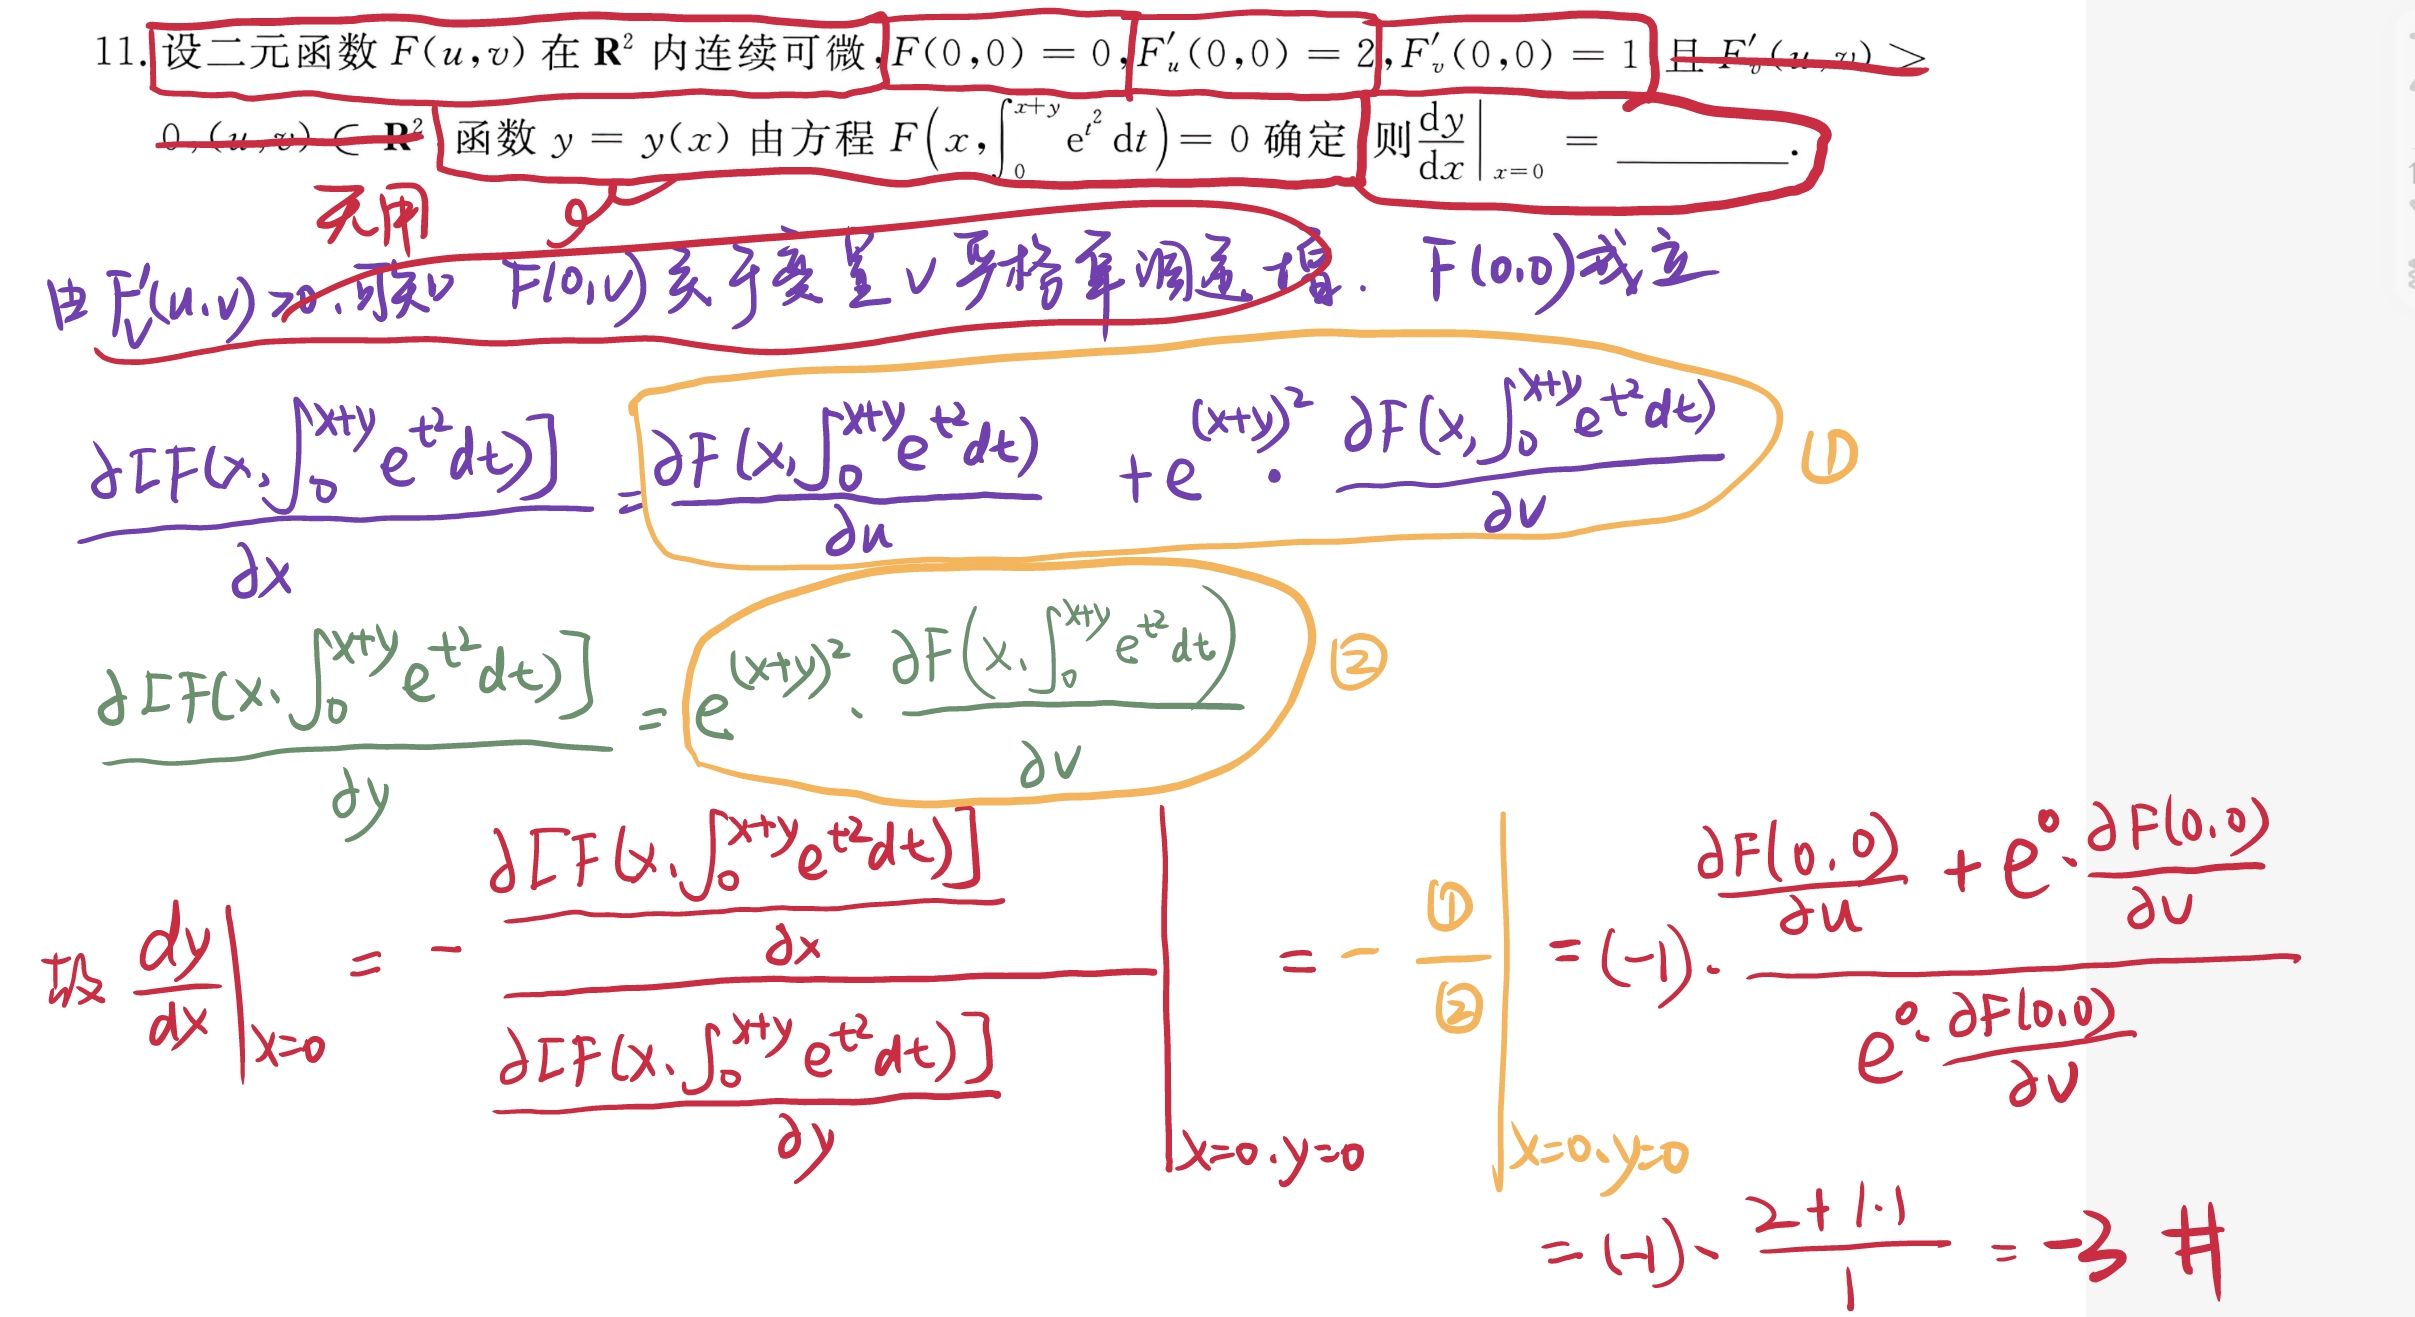 11. 设二元函数 F(u,v) 在 R² 内连续可微, F(0,0) = 0, F′ᵤ(0,0) = 2, F′ᵥ(0,0) = 1 且 F′ᵥ(u,v) >
0, (u,v) ∈ R² 函数 y = y(x) 由方程 F(x, ∫₀^{x+y} e^{t²} dt) = 0 确定 则 dy/dx |ₓ₌₀ = ______.
无用
由 F′ᵥ(u,v)>0,可知 F(0,v)关于变量 v 严格单调递增. F(0,0)成立
∂[F(x,∫₀^{x+y} e^{t²}dt)]/∂x = ∂F(x,∫₀^{x+y} e^{t²}dt)/∂u + e^{(x+y)²} · ∂F(x,∫₀^{x+y} e^{t²}dt)/∂v ①
∂[F(x,∫₀^{x+y} e^{t²}dt)]/∂y = e^{(x+y)²} · ∂F(x,∫₀^{x+y} e^{t²}dt)/∂v ②
故 dy/dx |ₓ₌₀ = - (∂[F(x,∫₀^{x+y} e^{t²}dt)]/∂x)/(∂[F(x,∫₀^{x+y} e^{t²}dt)]/∂y) |x=0,y=0 = - ①/② |x=0,y=0 = (-1)·(∂F(0,0)/∂u + e⁰·∂F(0,0)/∂v)/(e⁰·∂F(0,0)/∂v)
= (-1)·(2+1·1)/1 = -3 #